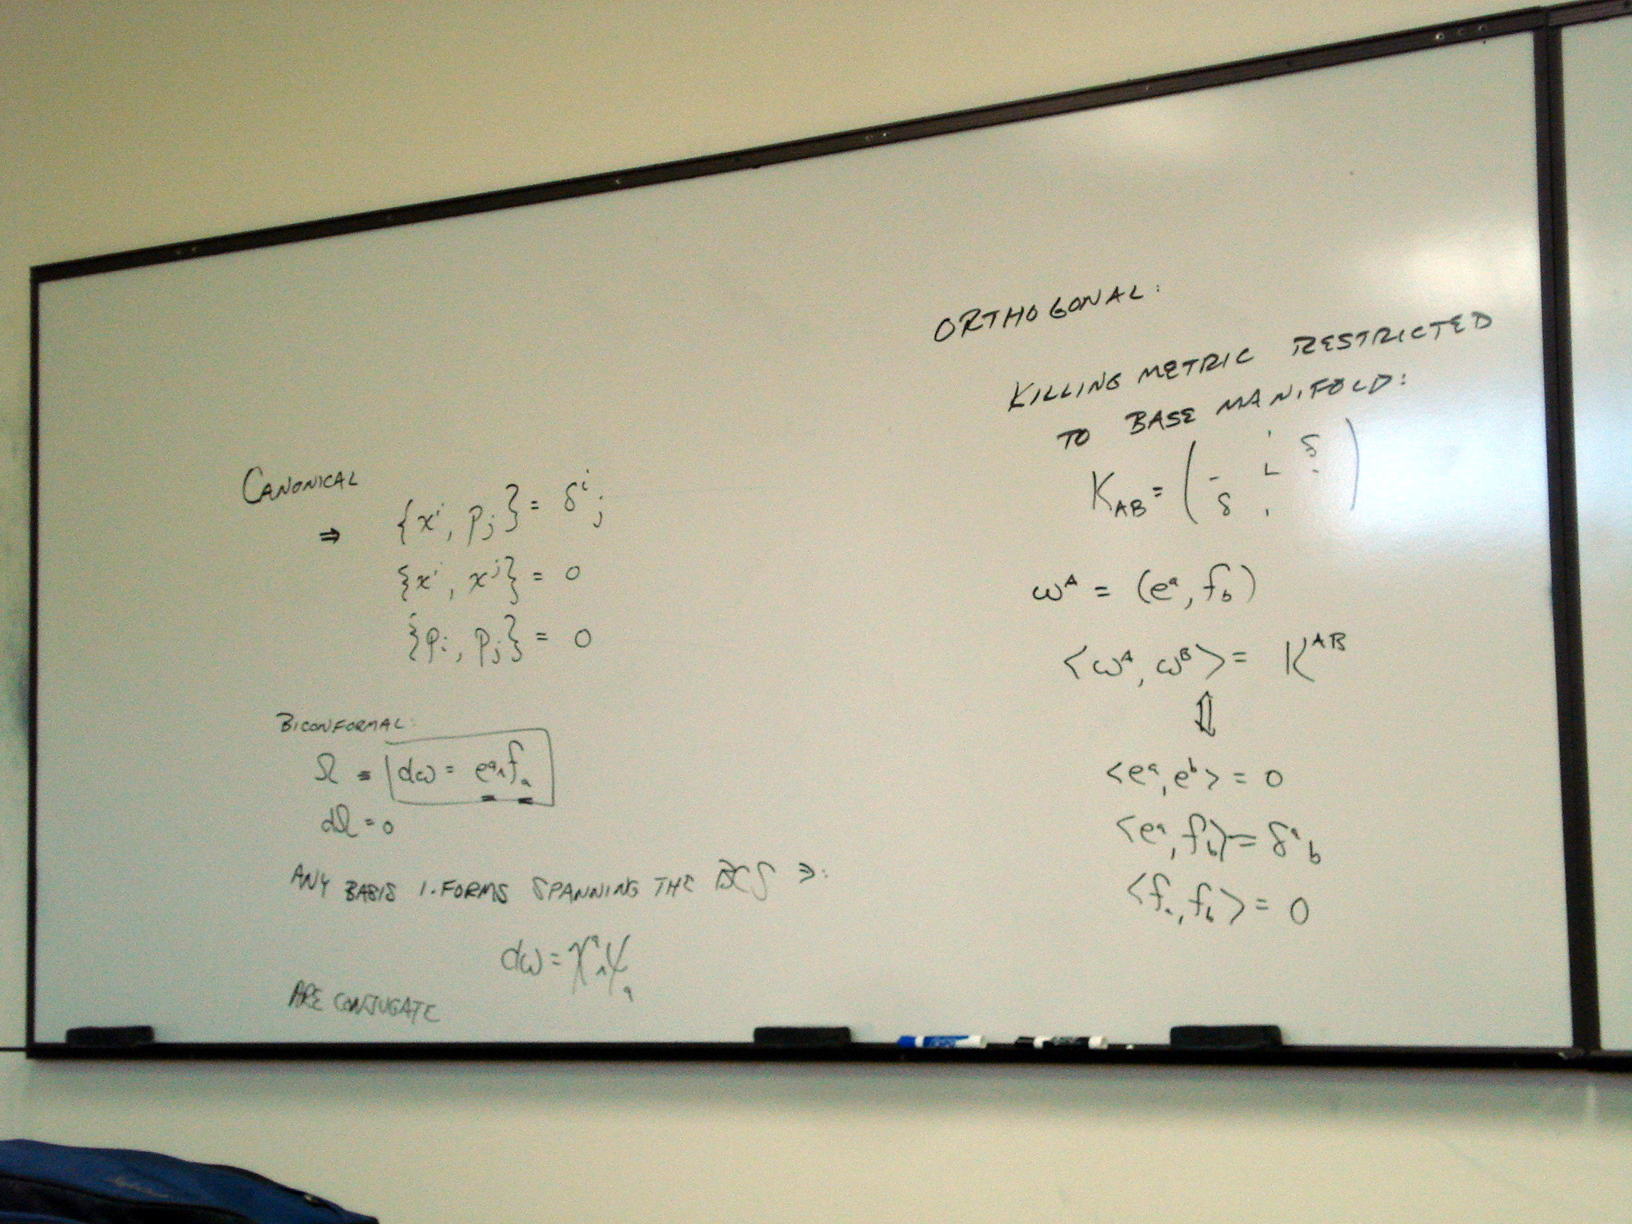 CANONICAL
⇒ {xⁱ, pⱼ} = δⁱⱼ
{xⁱ, xʲ} = 0
{pᵢ, pⱼ} = 0
BICONFORMAL:
Ω = dω = eᵃ∧fₐ
dΩ = 0
ANY BASIS 1-FORMS SPANNING THE BCS ∋:
dω = χᵃ∧ψₐ
ARE CONJUGATE
ORTHOGONAL:
KILLING METRIC RESTRICTED
TO BASE MANIFOLD:
K_AB = ( δ
δ )
ω^A = (e^a, f_b)
<ω^A, ω^B> = K^AB
⇕
<e^a, e^b> = 0
<e^a, f_b> = δ^a_b
<f_a, f_b> = 0